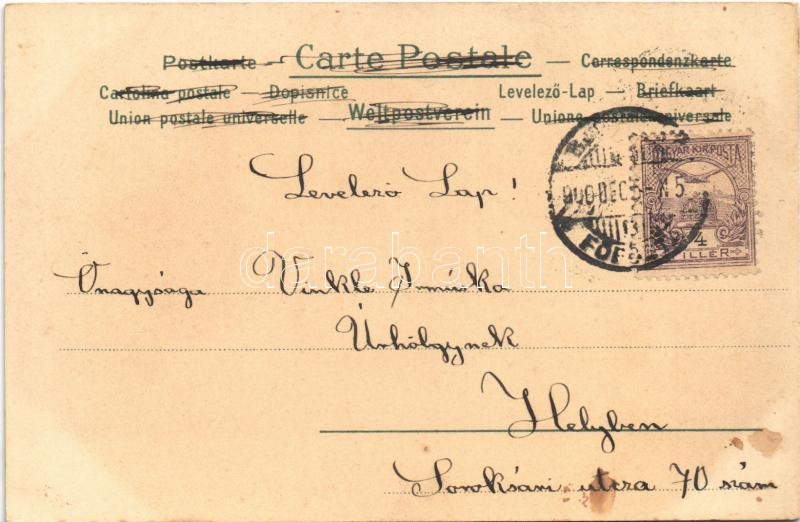 Postkarte — Carte Postale — Correspondenzkarte
Cartolina postale — Dopisnice Levelező-Lap — Briefkaart
Union postale universelle — Weltpostverein — Unione postale universale
Levelező Lap!
MAGYAR KIR. POSTA
900 DEC 5 N 5
4
FILLER
darabanth
Őnagysága Vinkle Irminka
Úrhölgynek
Helyben
Soroksári utcza 70 szám